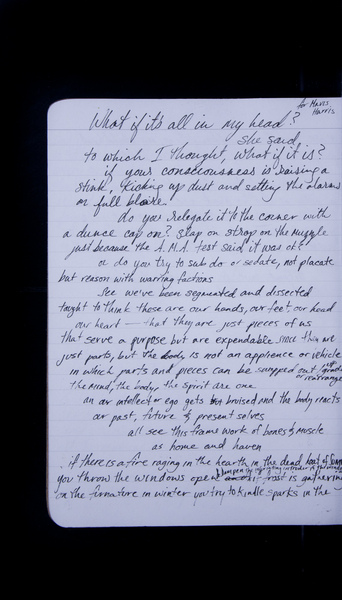 for Mavis
Harris
What if it's all in my head?
she said,
to which I thought, what if it is?
if your consciousness is raising a
stink, kicking up dust and setting the alarms
on full blare
do you relegate it to the corner with
a dunce cap on? Slap on strap on the muzzle
just because the A.M.A. test said it was ok?
or do you try to subdue or sedate, not placate
but reason with warring factions
See we've been segmented and dissected
taught to think these are our hands, our feet, our head
our heart — that they are just pieces of us
that serve a purpose but are expendable
just parts, but the body is not an appliance or vehicle
in which parts and pieces can be swapped out
rearranged
the mind, the body, the spirit are one
an our intellect or ego gets bruised and the body reacts
our past, future & present selves
all see this frame work of bones & muscle
as home and haven
if there is a fire raging in the hearth in the dead heat of
you throw the windows open frost is gathering
on the furnature in winter you try to kindle sparks in the